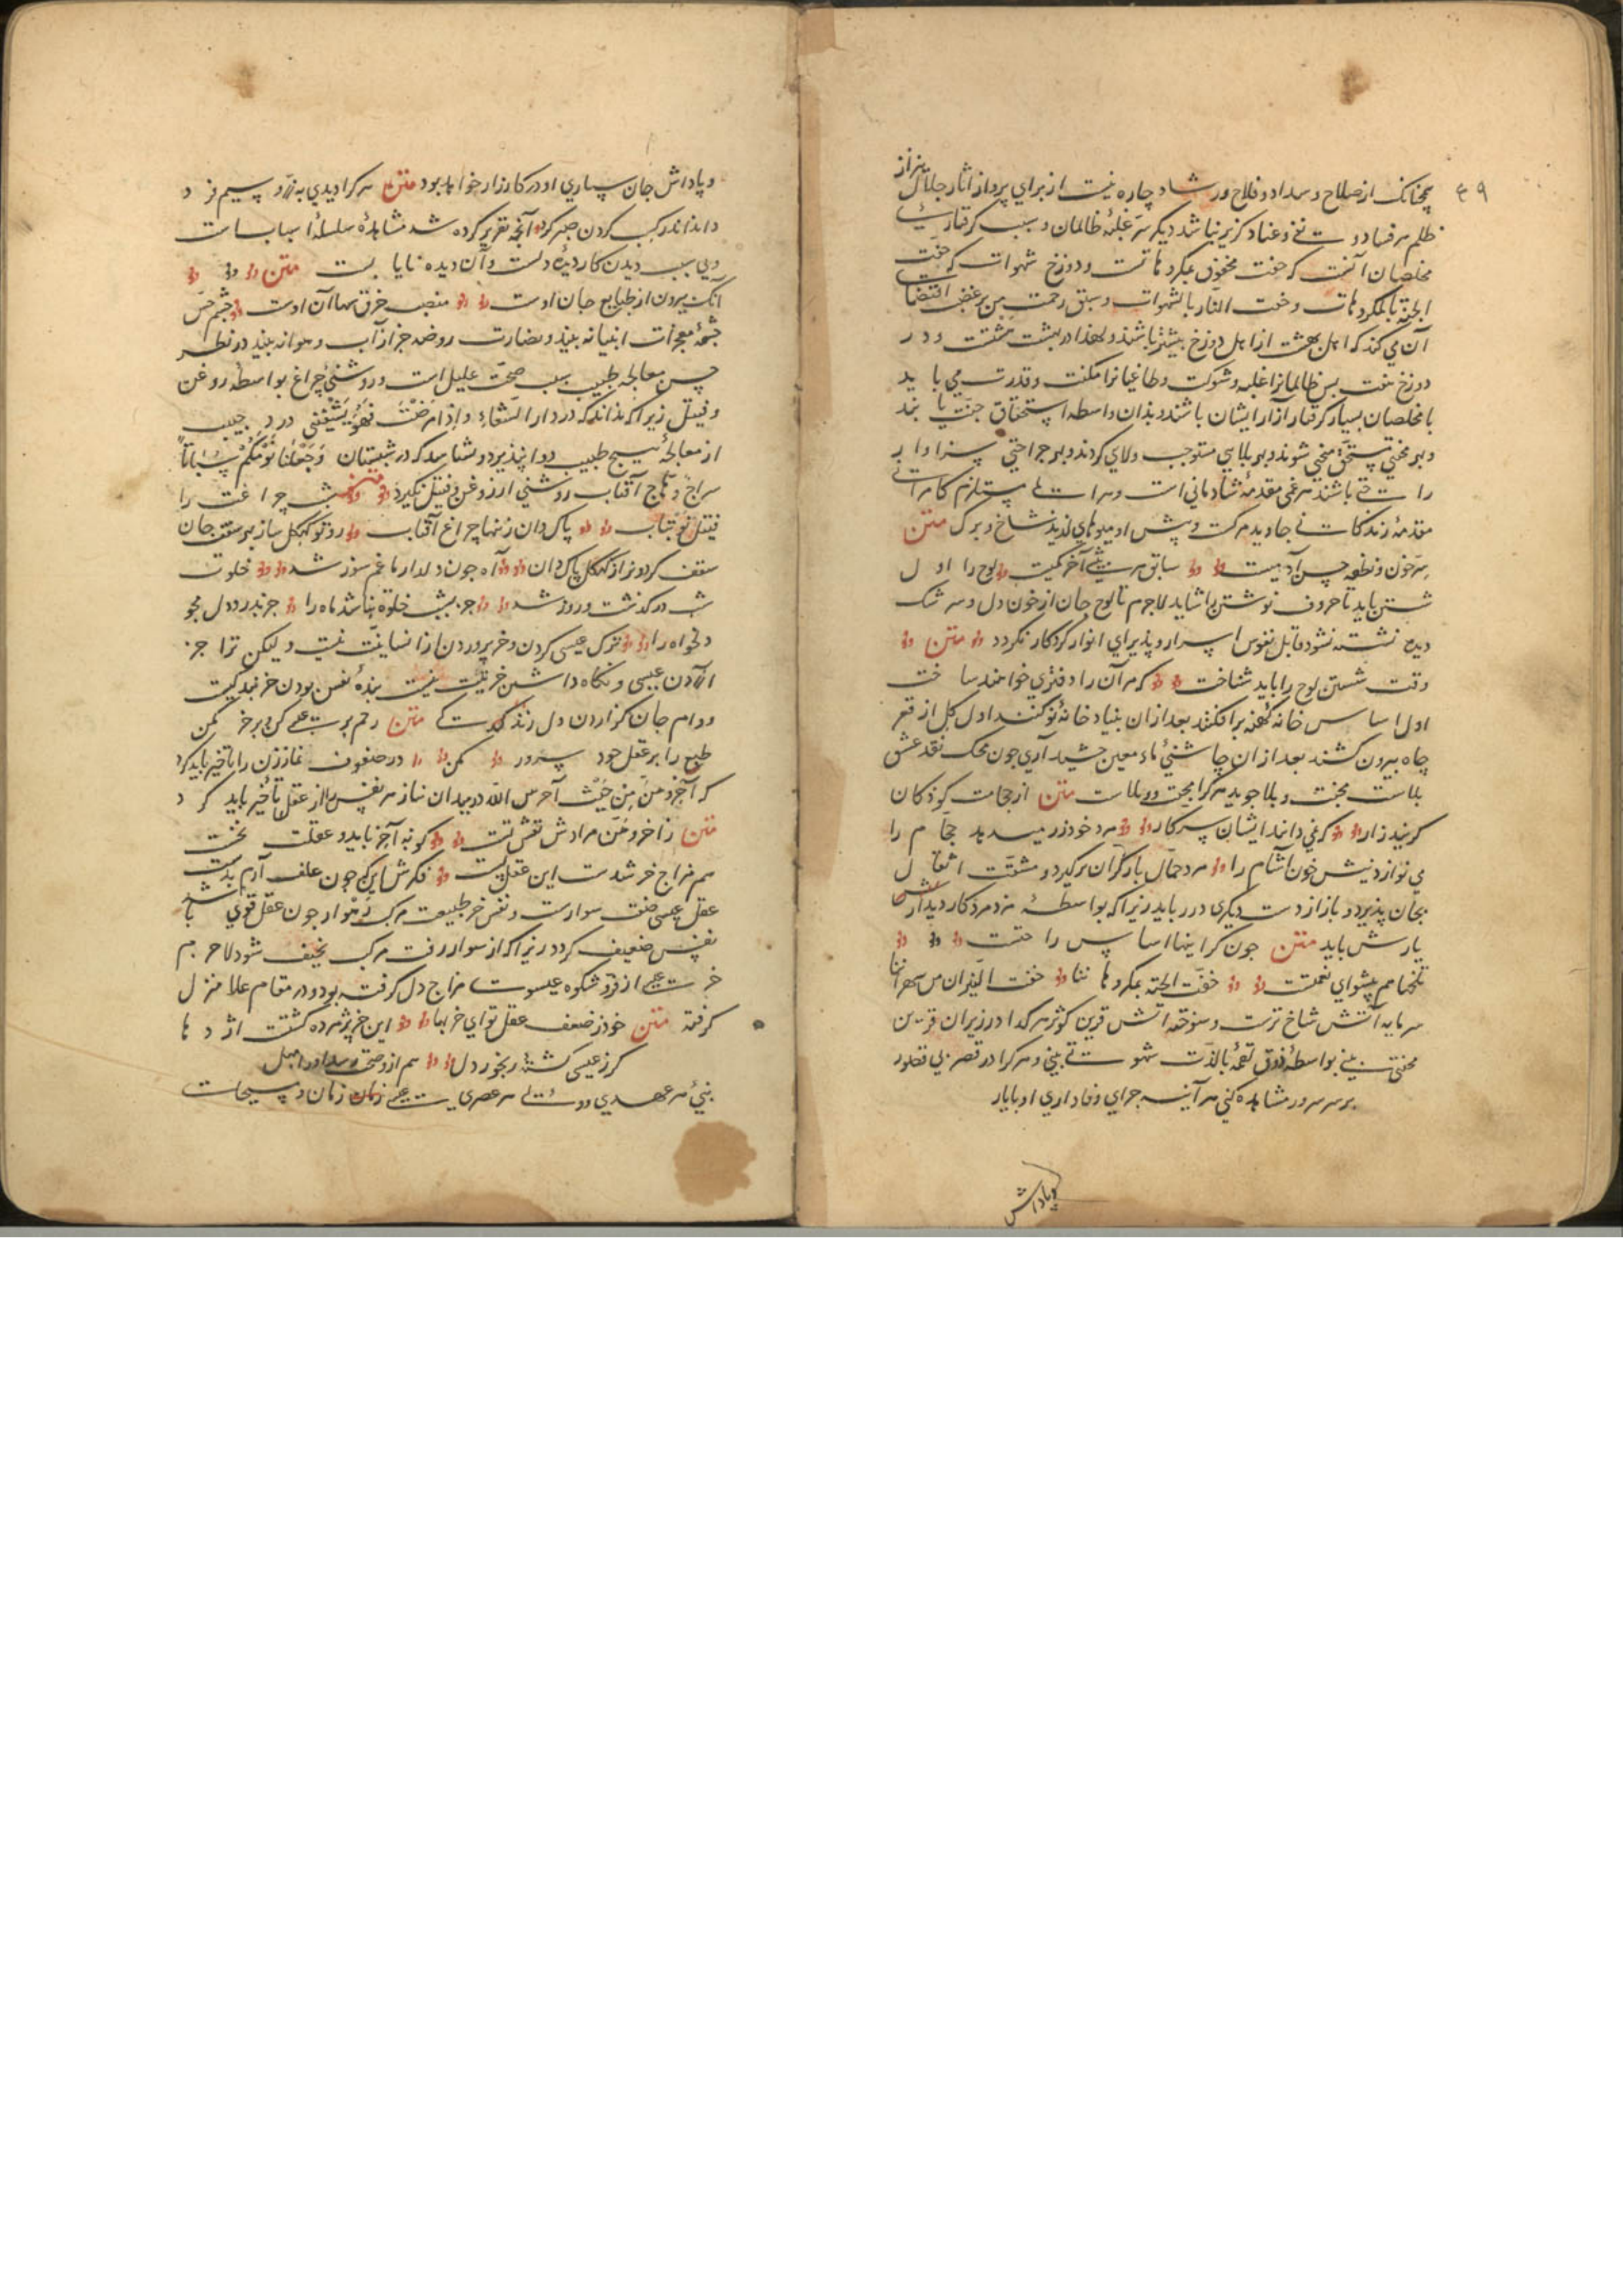 ۴۹
همچنانک از صلاح و سداد و فلاح و رشاد چاره نیست از برای پرداز آثار جلال نیز از
ظلم و فساد و نفی و عناد گزیر نباشد دیگر سر غلبهٔ ظالمان و سبب گرفتاری
مخلصان آنست که جنت محفوف بمکروهاتست و دوزخ شهوات که حفت
الجنة بالمکروهات و حفت النار بالشهوات و سبق رحمت من بر غضب اقتضاء
آن می کند که اهل بهشت از اهل دوزخ بیشتر باشند و لهذا در بهشت هشتست و در
دوزخ هفت پس ظالمانرا غلبه و شوکت و طاغیانرا مکنت و قدرت می باید
تا مخلصان بسیار گرفتار آزار ایشان باشند و بذان واسطه استحقاق جنت یابند
و بهر محنتی مستحق منحی شوند و بهر بلایی مستوجب ولای گردند و بهر جراحتی سزاوار
راحتی باشند هر غمی مقدمهٔ شادمانی است و هر المی مستلزم کامرانی
مقدمهٔ زندگانی جاوید مرگست و پیش او میوهای لذیذ شاخ و برگ متن
سر خون و نطفه حسن آدمیست سابق هر بیشی آخر کمیست لوح را اول
شستن باید تا حروف نوشتن را شاید لاجرم تا لوح جان از خون دل و سرشک
دیده شسته نشود قابل نقوس اسرار و پذیرای انوار کردکار نکردد متن
وقت شستن لوح را باید شناخت که مر آن را دفتری خواهند ساخت
اول اساس خانه کهنه برافکنند بعد از ان بنیاد خانهٔ نو کنند اول گل از قعر
چاه بیرون کشند بعد از ان چاشنی ماء معین چشید آری چون محک نقد عشق
بلاست محنت و بلا جوید هر کرا محبت و ولاست متن از حجامت کوذکان
گریند زار که نمی دانند ایشان سر کار مرد خود زر میدهد حجام را
می نوازد نیش خون آشام را مرد حمال بار گران برگیرد و مشقت اثقال
بجان پذیرد و باز از دست دیگری در رباید زیرا که بواسطهٔ مزد مرد کار دیدار
یارش باید متن چون گرانیها اساس راحتست
تلخها هم پیشوای نعمتست حفت الجنة بمکروهاتنا حفت النیران من شهواتنا
سرمایه آتش شاخ ترست و سوخته آتش قرین کوثر هر کدا در زیران قرین
محنتی بینی بواسطهٔ ذوق لقمه یا لذت شهوتی بینی و هر کرا در قصر بی قصور
بر سر سرور مشاهده کنی هر آینه جزای وفاداری او با یار
و پاداش
و پاداش جان سپاری او در کارزار خواهد بود متن هر کرا دیدی به زر و سیم فرد
دانداندر کسب کردن صبر کرد آنچه تقریر کرده شد مشاهدهٔ سلسلهٔ اسبابست
و بی سبب دیدن کار دیدهٔ دلست و آن دیده نایابست متن
آنک بیرون از طبایع جان اوست منصب خرق سبها آن اوست چشم حس
چشمهٔ معجزات انبیا نه بیند و نضارت روضه جز از آب و هوا نه بیند در نظر
حسن معالجه طبیب سبب صحت علیل است و روشنی چراغ بواسطهٔ روغن
و فتیل زیرا که نداند که در دار الشفاء و اذا مرضت فهو یشفینی درد حبیب
از معالجهٔ هیچ طبیب دوا نپذیرد و نشناسد که در شبستان و جعلنا نومکم سباتا
سراج وهاج آفتاب روشنی از روغن و فتیل نگیرد متن شب چراغت را
فتیل نو بتاب پاک دان زینها چراغ آفتاب رو تو کهگل ساز بهر سقف جان
سقف گردون را ز کهگل پاک دان آه چون دلدار ما غم سوز شد خلوت
شب درگذشت و روز شد جز بشب خلوة نباشد ماه را جز بدرد دل مجو
دلخواه را ترک عیسی کردن و خر پروردن از انسانیت نیست ولیکن ترا جز
آزردن عیسی و نگاه داشتن خر نیت نیست بندهٔ نفس بودن خر بندگیست
و دوام جان گزاردن دل زندگیست متن رحم بر عیسی کن و بر خر مکن
طبع را بر عقل خود سرور مکن در صفوف نماز زن را تأخیر باید کرد
که أخروهن من حیث أخرهن الله در میدان نیاز هر نفس را از عقل تأخیر باید کرد
متن ز اخروهن مرادش نفس تست کو به آخر باید و عقلت نخست
هم مزاج خر شدست این عقل پست فکرش اینکه چون علف آرم بدست
عقل عیسی صفت سوارست و نفس خر طبیعت مرکب رهوار چون عقل قوی باشد
نفس ضعیف گردد زیرا که از سوار رفت مرکب نحیف شود لاجرم
خر عیسی از فر شکوه عیسوی مزاج دل گرفته بود و در مقام علا منزل
گرفته متن خود ز ضعف عقل تو ای خر بها این خر پژمرده گشتست اژدها
گر ز عیسی گشتهٔ رنجور دل هم ازو صحت رسد او را مهل
نبی هر عهدی و ولی هر عصری عیسی زمان و مسیحات